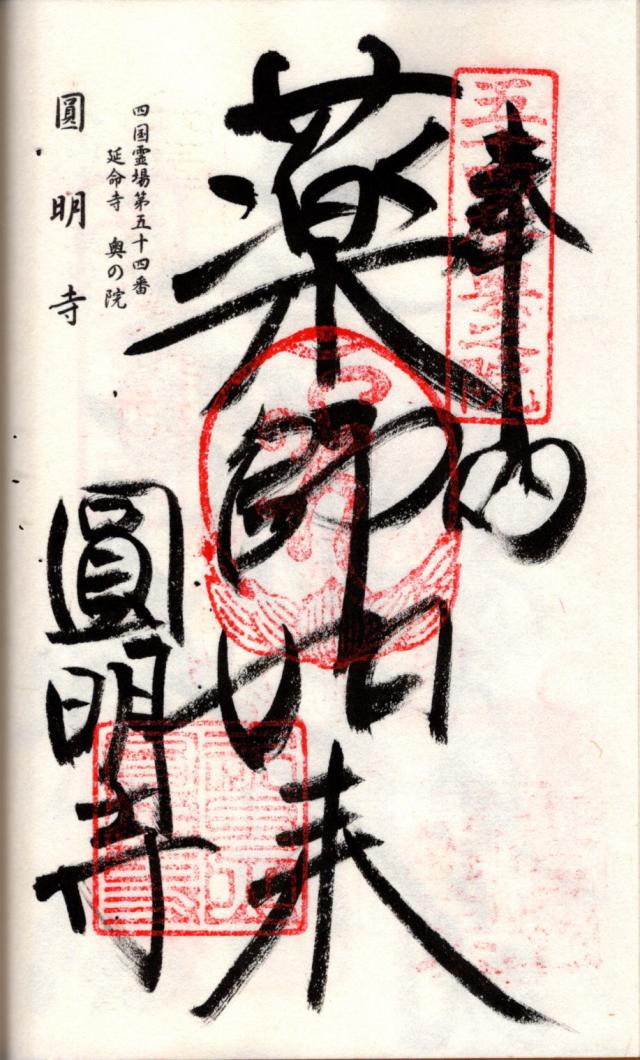 奉納
薬師如来
四国霊場第五十四番
延命寺 奥の院
圓明寺
圓明寺